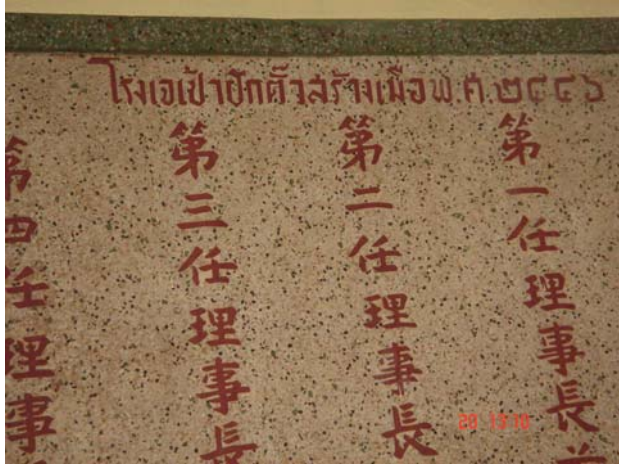 โรงเจเป้าฮกตั๊วสร้างเมื่อพ.ศ.๒๔๔๖
第一任理事長
第二任理事長
第三任理事長
第四任理事